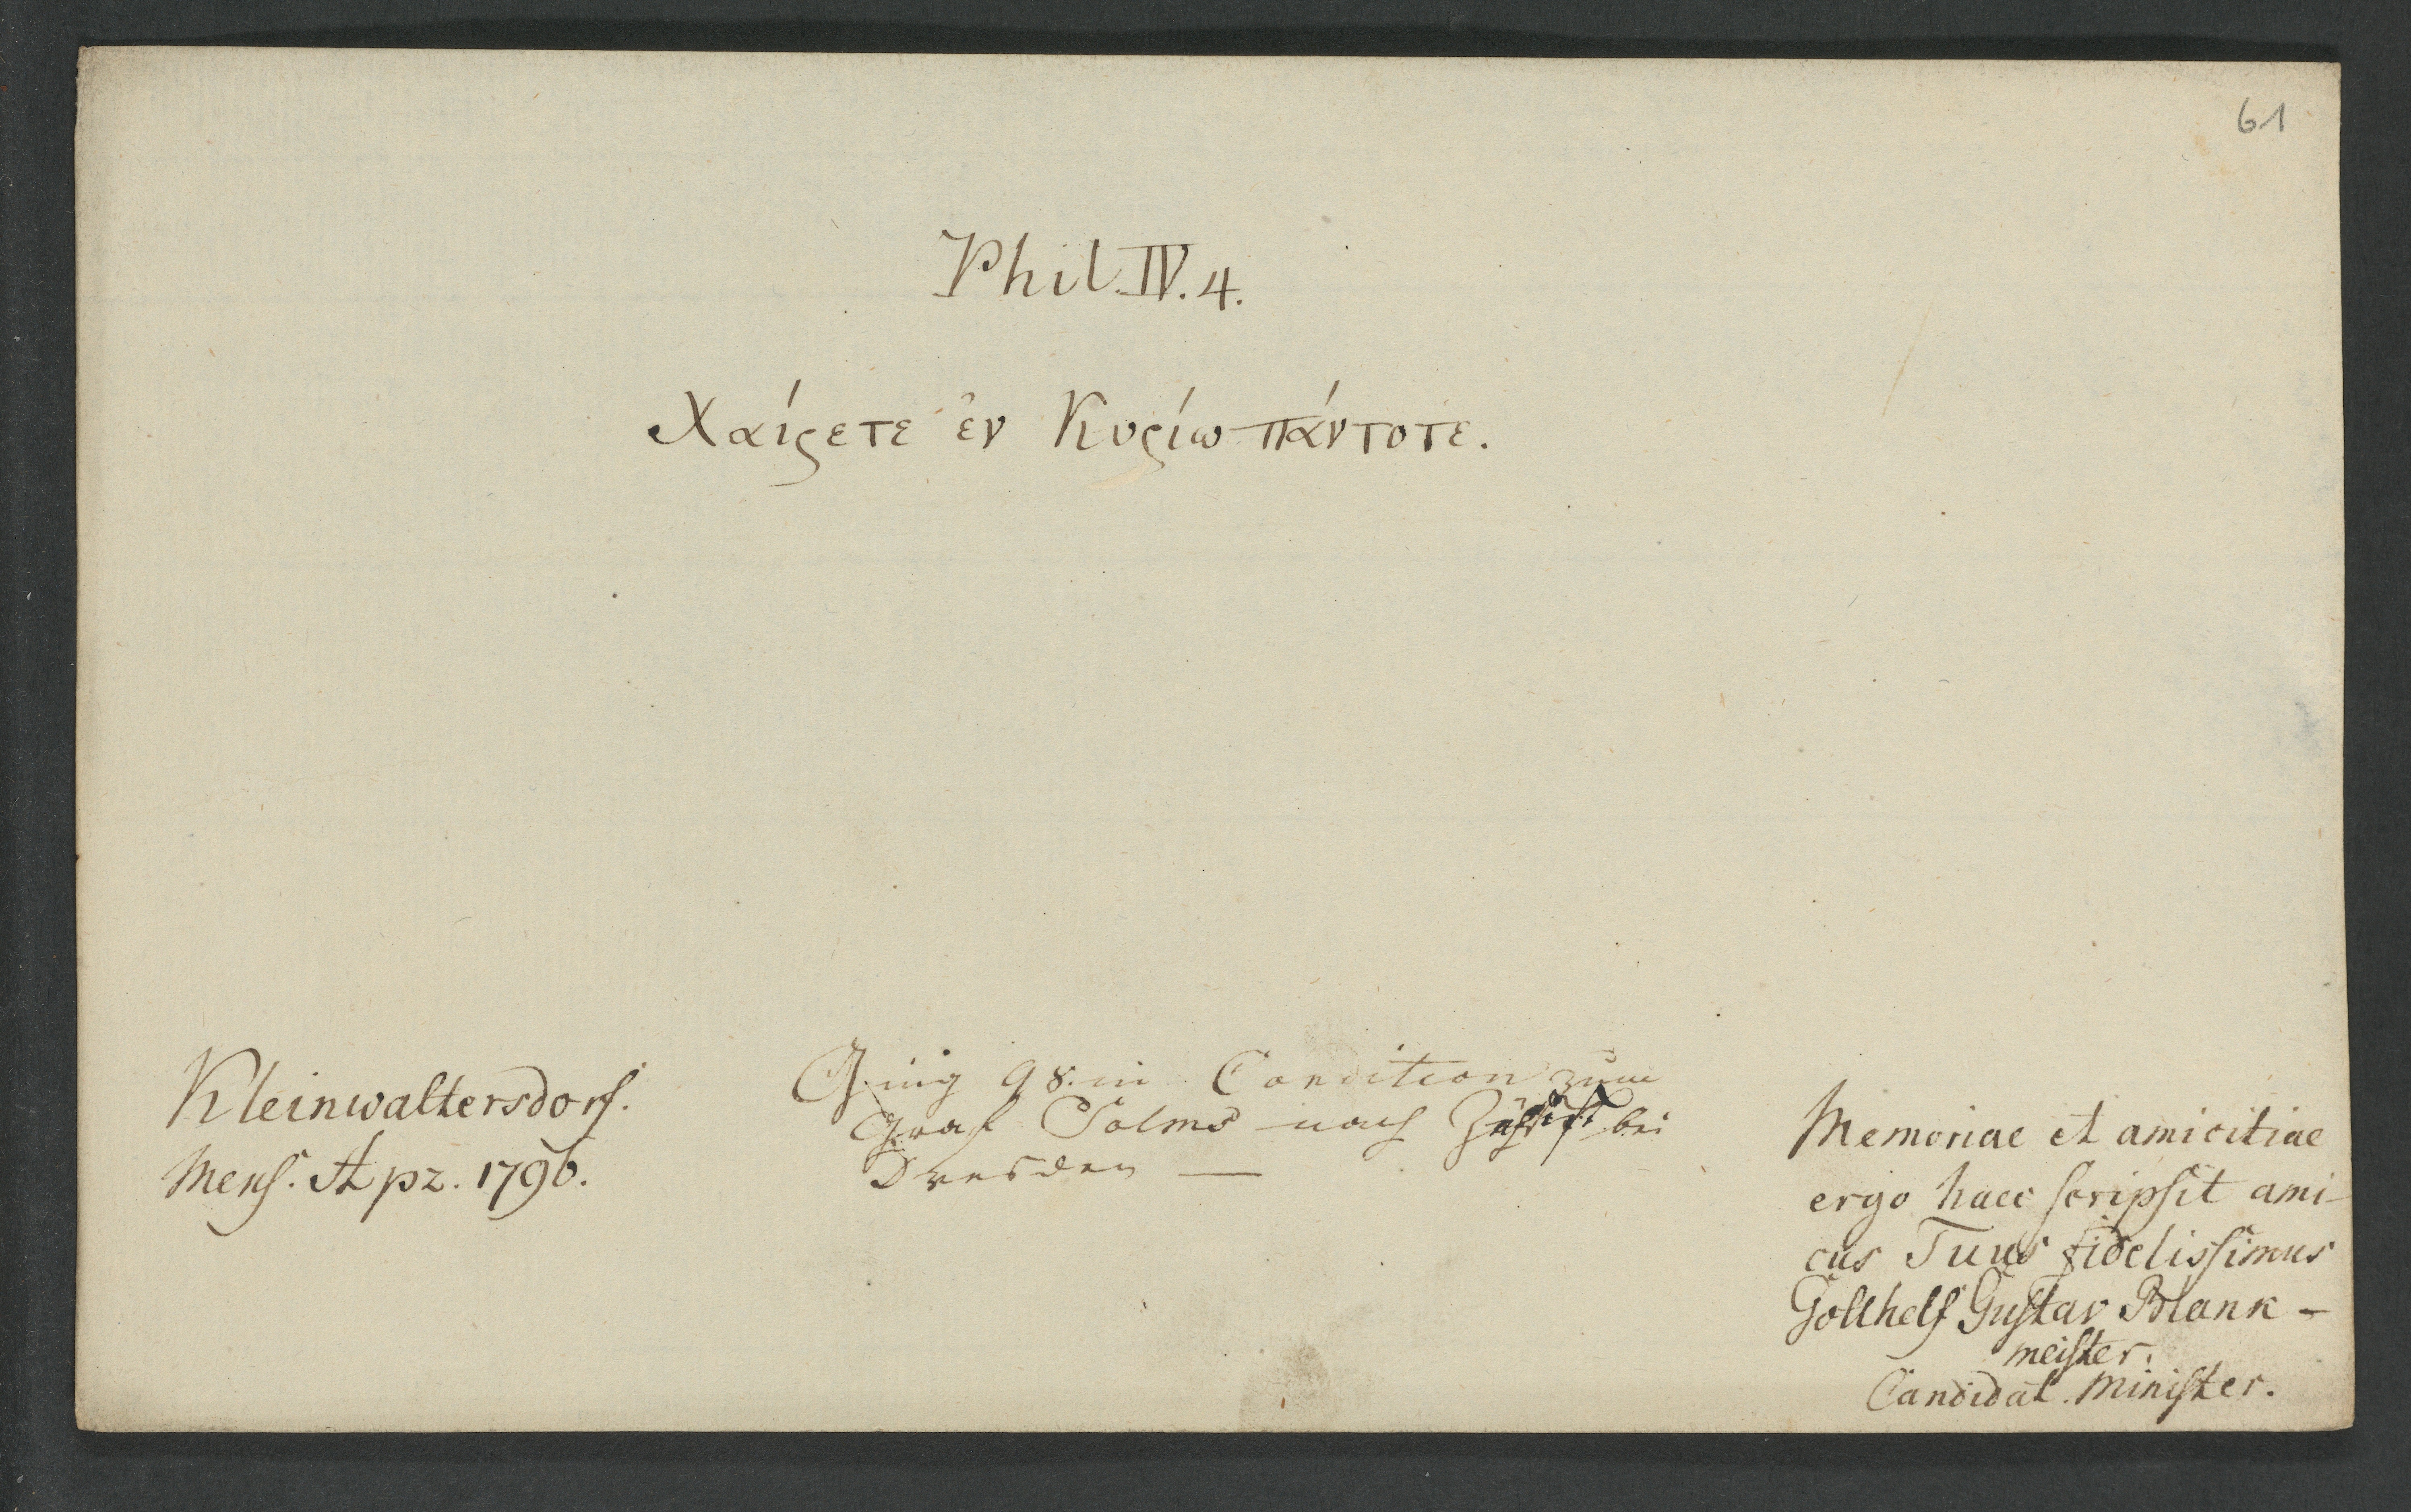 61
Phil. IV. 4.
Χαίρετε ἐν Κυρίω πάντοτε.
Kleinwaltersdorf.
Mens. Apr. 1796.
Ging 98. in Condition zum
Graf Solms nach bei
Dresden —
Memoriae et amicitiae
ergo haec scripsit ami-
cus Tuus fidelissimus
Gotthelf Gustav Blank-
meister.
Candidat. Minister.